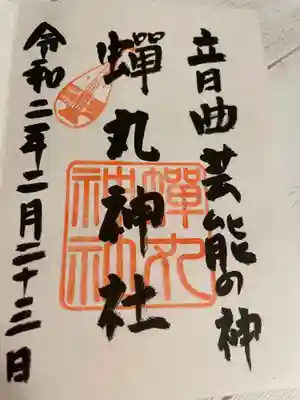 音曲芸能の神
蟬丸神社
令和二年二月二十三日
蟬丸
神社